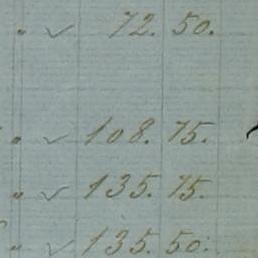 " ✓ 72. 50.
" ✓ 108. 75.
" ✓ 135. 75.
" ✓ 135. 50.